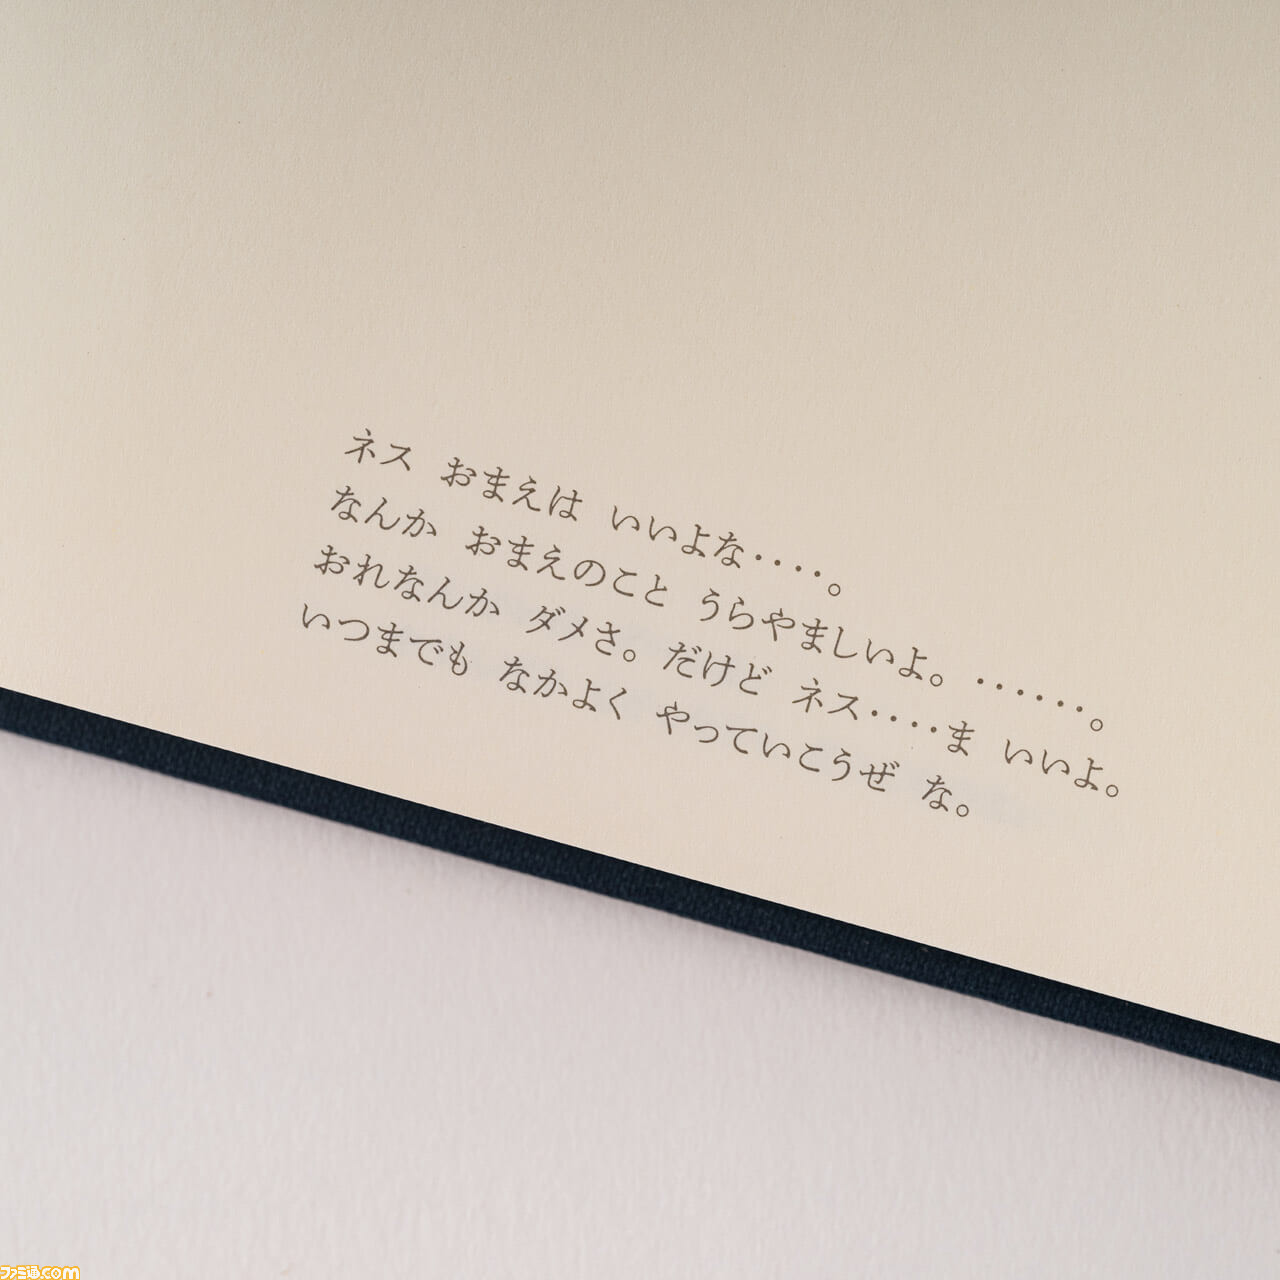 ネス おまえは いいよな‥‥。
なんか おまえのこと うらやましいよ。‥‥‥。
おれなんか ダメさ。だけど ネス‥‥ま いいよ。
いつまでも なかよく やっていこうぜ な。
ファミ通.com